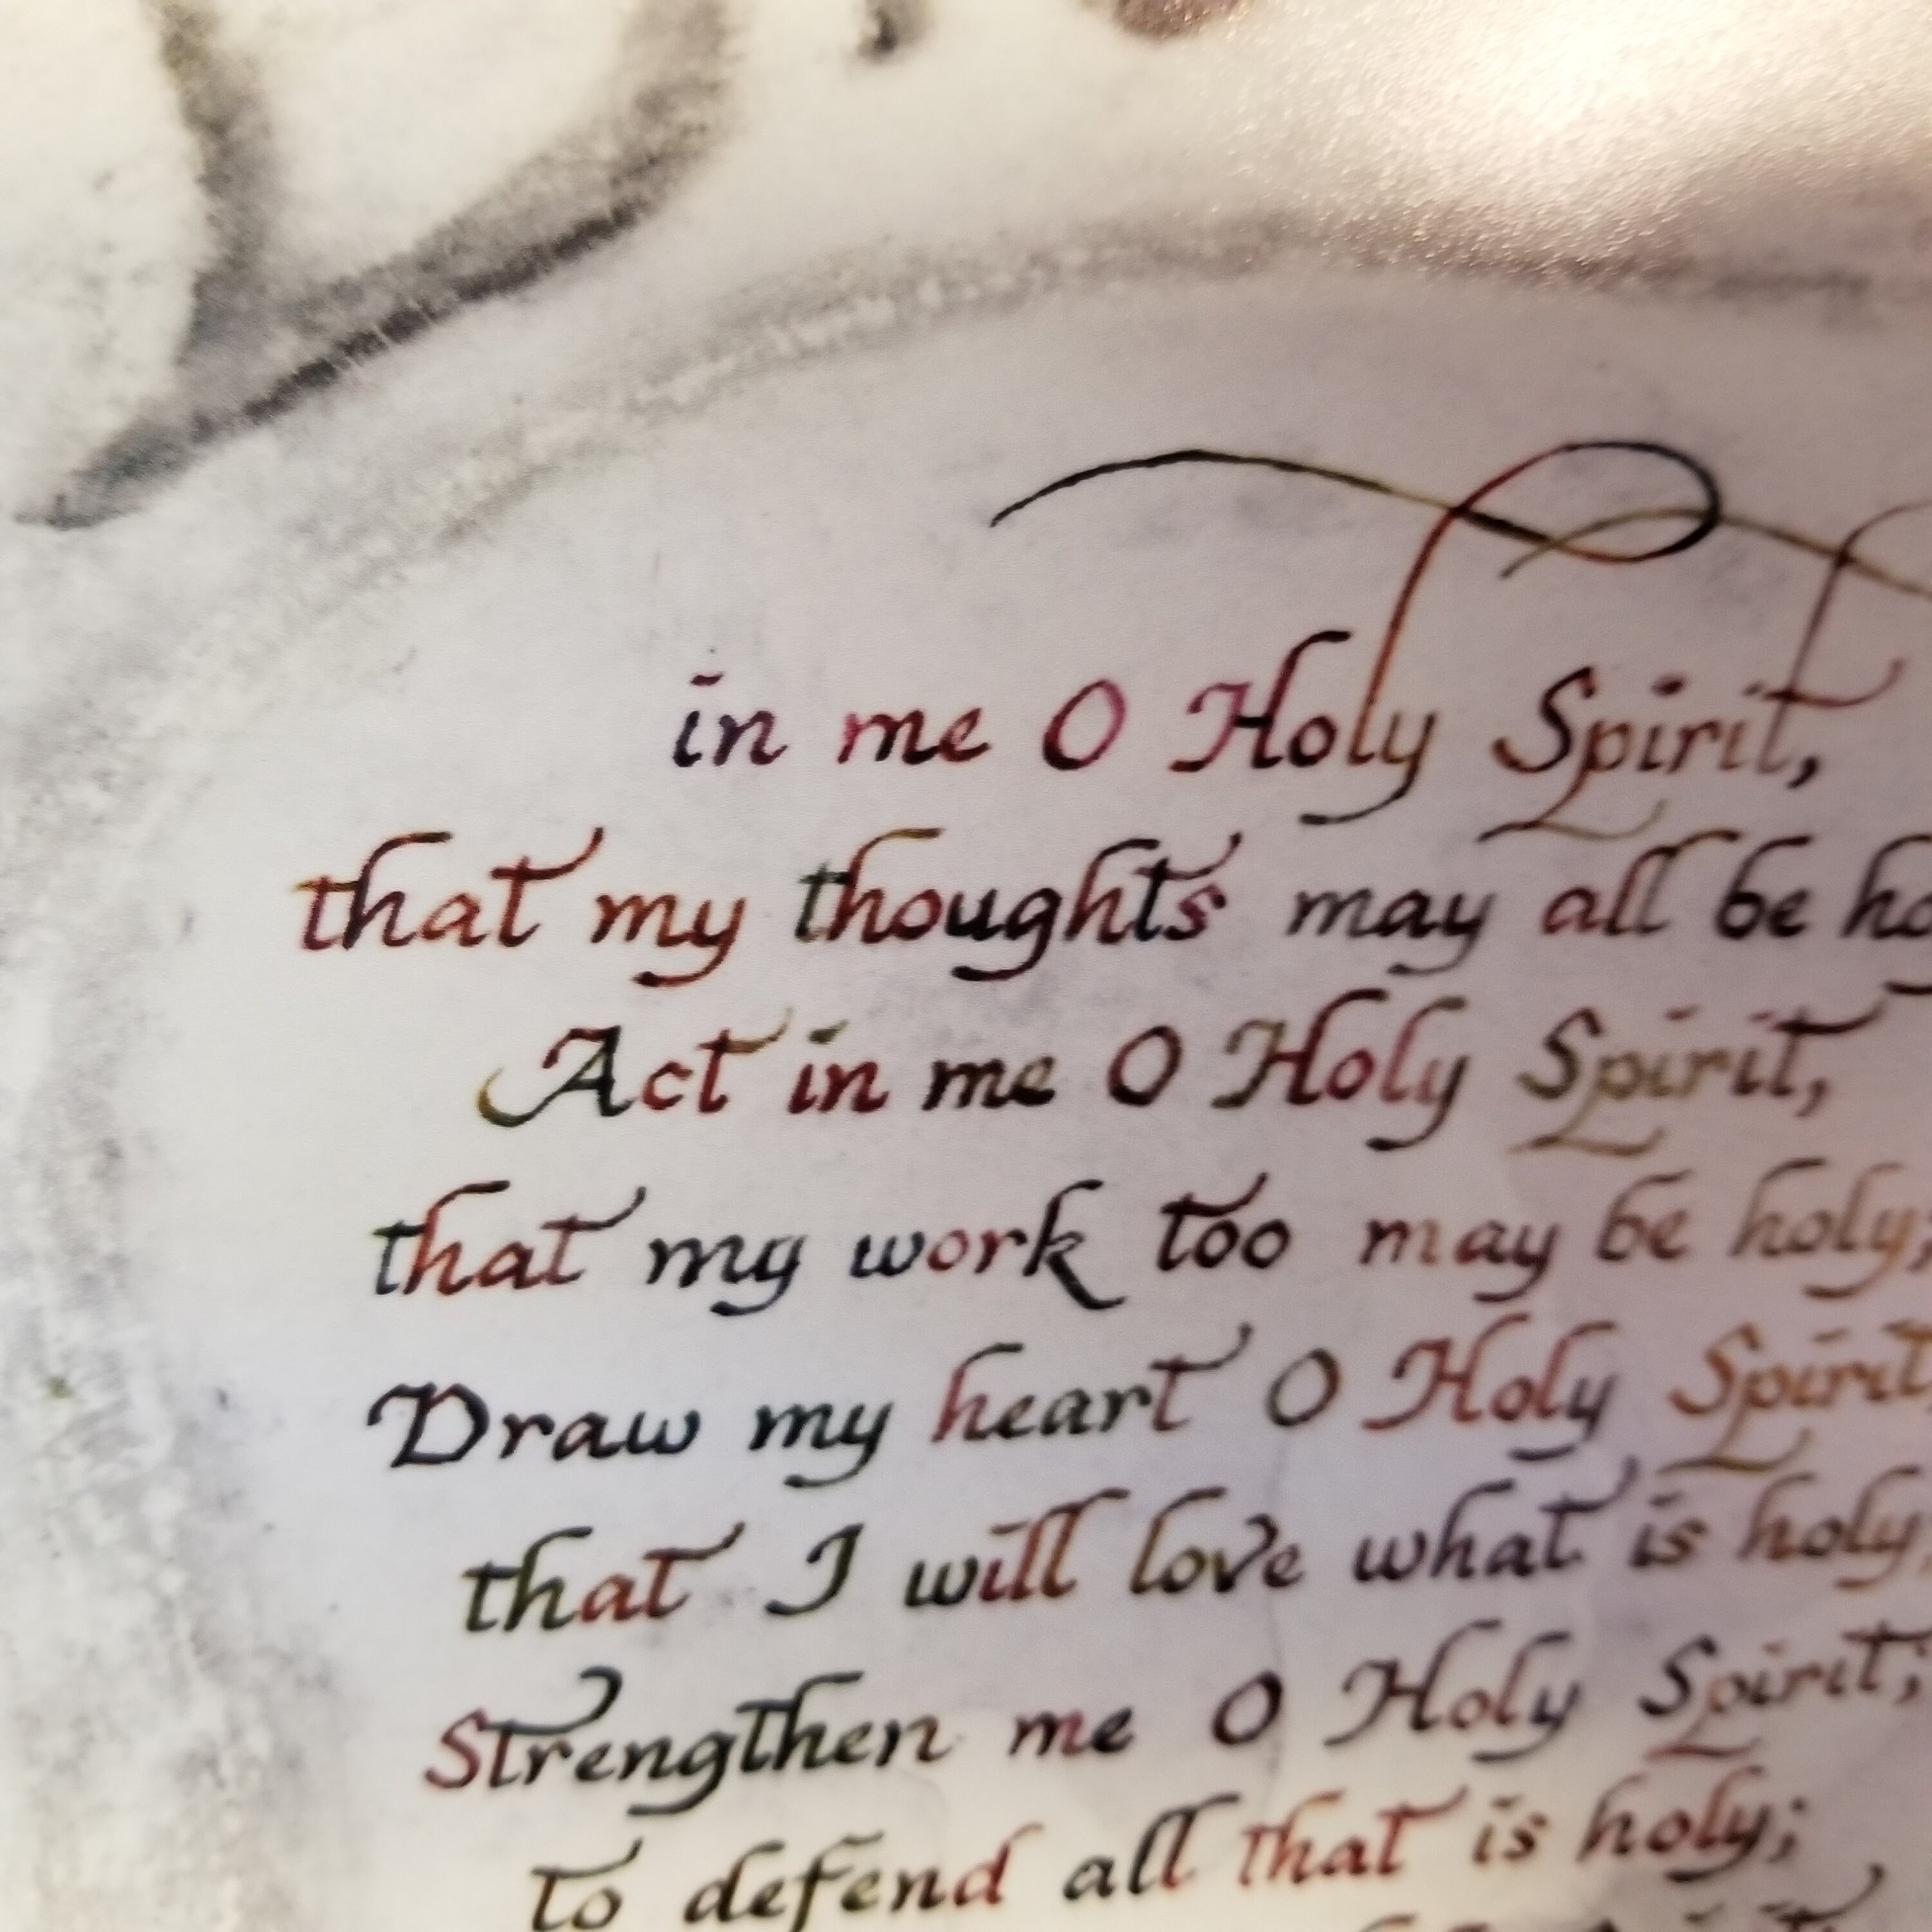 in me O Holy Spirit,
that my thoughts may all be
Act in me O Holy Spirit,
that my work too may be holy;
Draw my heart O Holy Spirit,
that I will love what is holy;
Strengthen me O Holy Spirit;
to defend all that is holy;